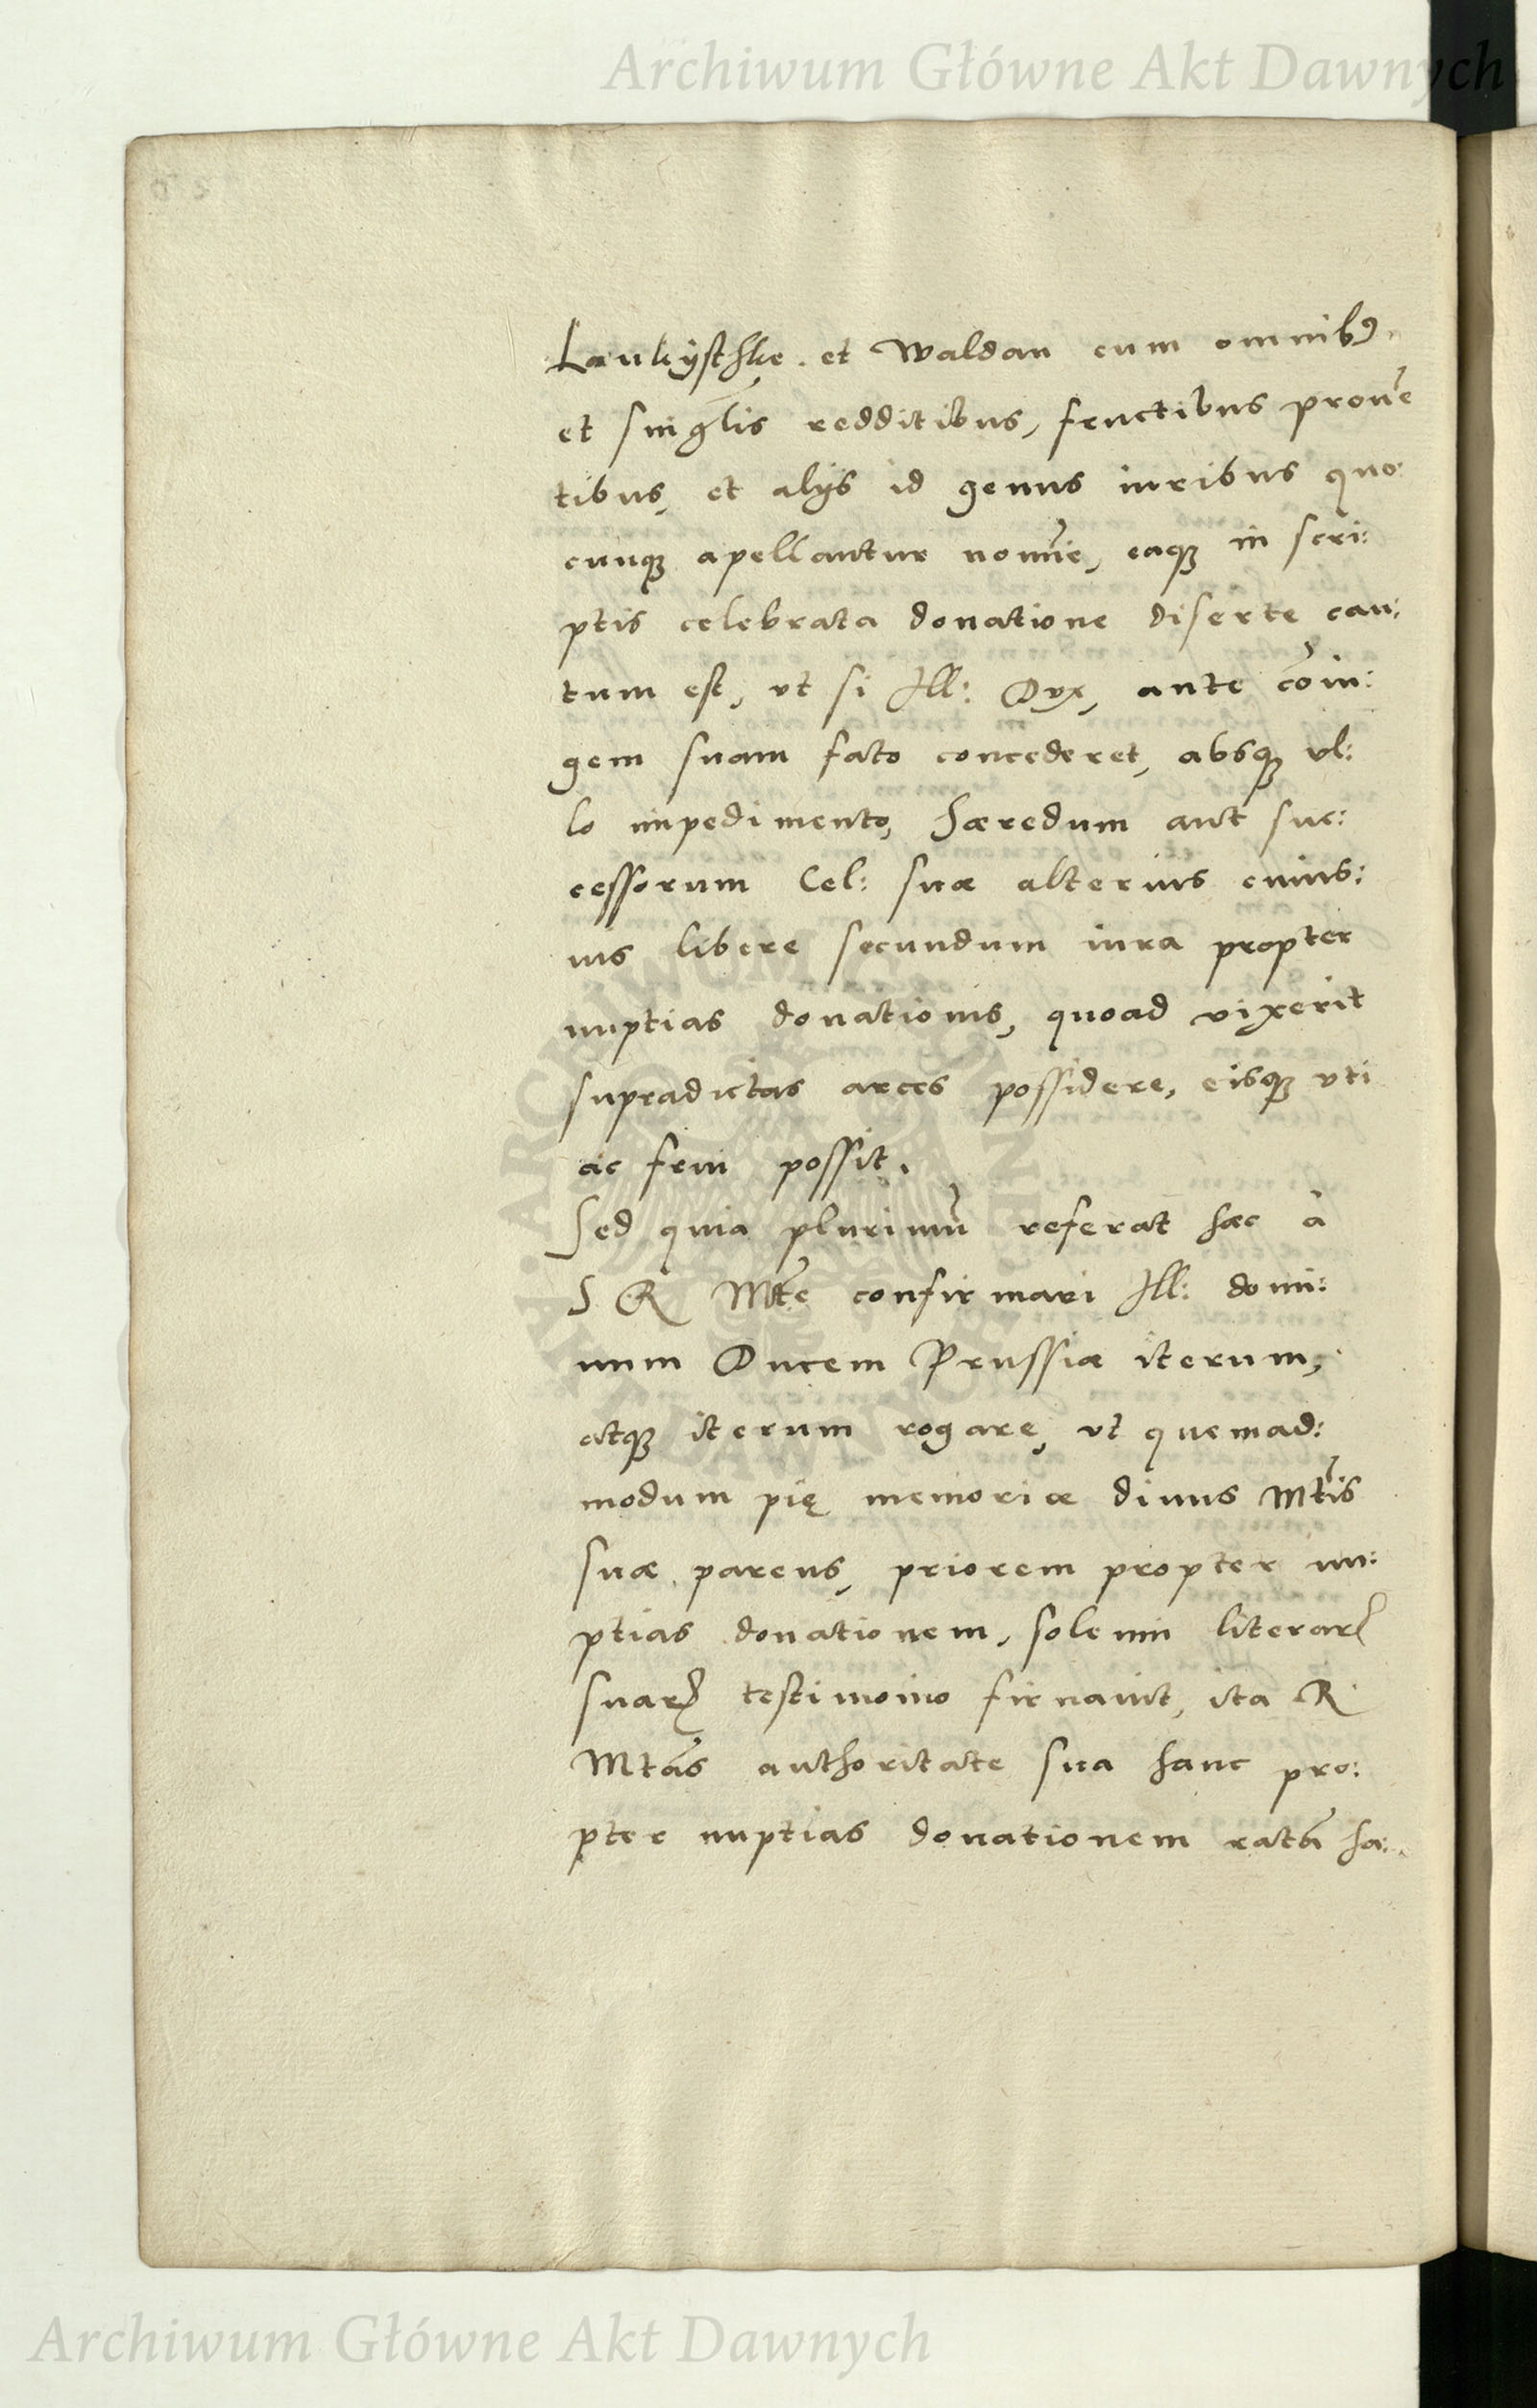 Archiwum Główne Akt Dawnych
Laukyschke. et Waldau cum omnibꝰ
et singlis redditibus, fructibus prouē
tibus, et alijs id genus iuribus quo
cunqꝫ apellantur nomīe, eaqꝫ in scri:
ptis celebrata donatione diserte cau:
tum est, vt si Ill: Dux, ante cōiu:
gem suam fato concederet, absqꝫ vl:
lo impedimento, hæredum aut suc:
cessorum Cel: suæ alterius cuius:
uis libere secundum iura propter
nuptias donationis, quoad vixerit
supradictas arces possidere, eisqꝫ vti
ac frui possit.
Sed quia plurimū referat hæc à
S R Mte confirmari Ill: domi:
num Ducem Prussiæ iterum,
atqꝫ iterum rogare, vt quemad:
modum pię memoriæ diuus Mtis
suæ parens, priorem propter nu:
ptias donationem, solemni literarꝫ
suarꝫ testimonio firmauit, ita R
Mtas authoritate sua hanc pro:
pter nuptias donationem ratā ha:
Archiwum Główne Akt Dawnych